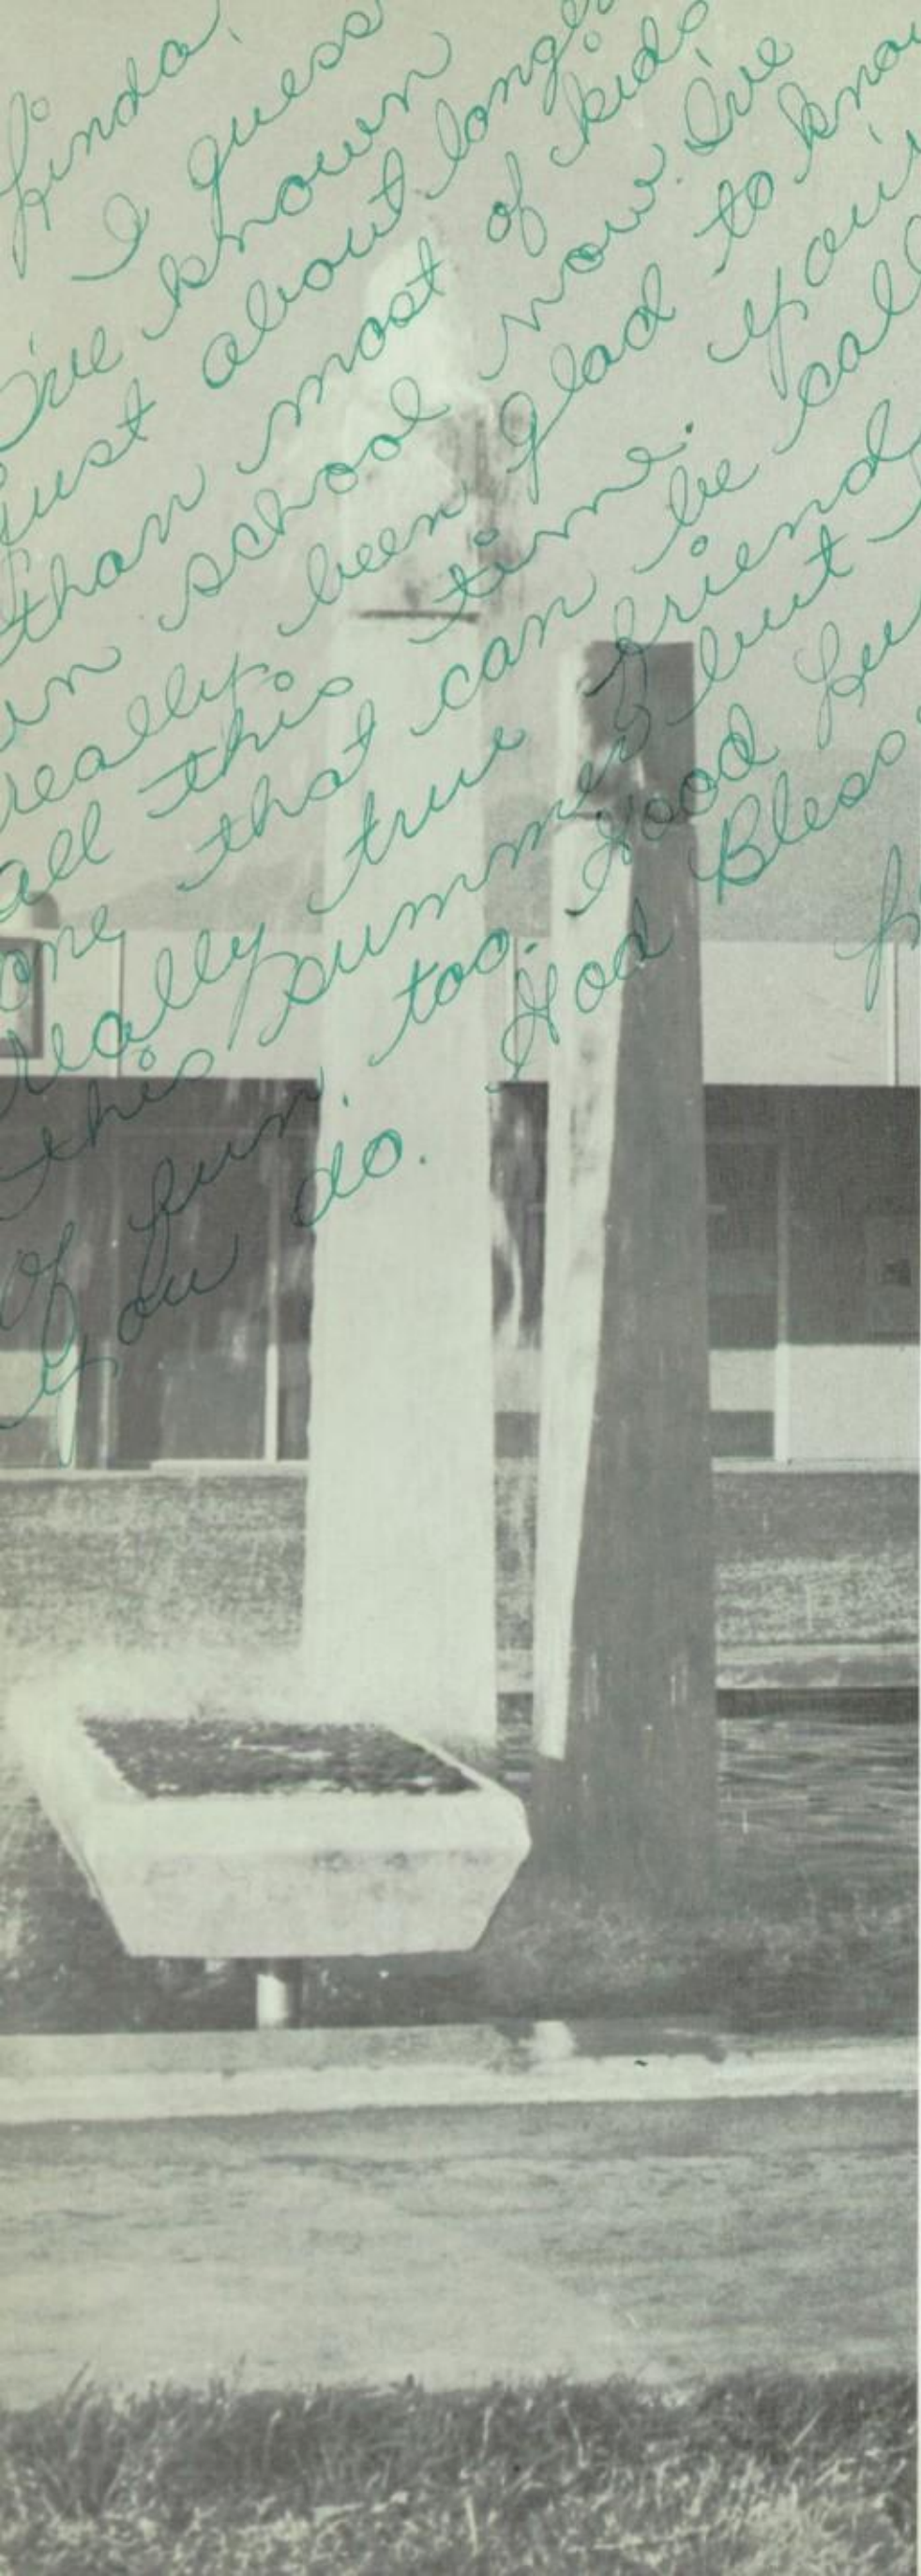 Linda,
I guess
I've known
just about longer
than most of kids
in school now. I've
really been glad to know
all this time. You'r
one that can be call
really true friend
this summer but
of fun, too. Good Lu
you do. God Bless